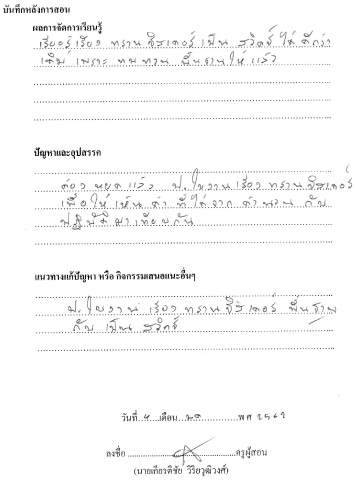 บันทึกหลังการสอน
ผลการจัดการเรียนรู้
เรียนรู้ เรื่อง ทรานซิสเตอร์ เป็น สวิตซ์ ได้ ดีกว่า
เดิม เพราะ ทบทวน พื้นฐานให้ แล้ว
ปัญหาและอุปสรรค
ต้อง แล้ว ป. ใบงาน เรื่อง ทรานซิสเตอร์
เพื่อให้ เห็น ค่า ที่ได้ จาก คำนวน กับ
ปฏิบัติ มา เทียบกัน
แนวทางแก้ปัญหา หรือ กิจกรรมเสนอแนะอื่นๆ
ป. ใบงาน เรื่อง ทรานซิสเตอร์ พื้นฐาน
กับ เป็น สวิตซ์
วันที่ เดือน พศ ๒๕๖๒
ลงชื่อ ครูผู้สอน
(นายเกียรติชัย วิริยวุฒิวงศ์)